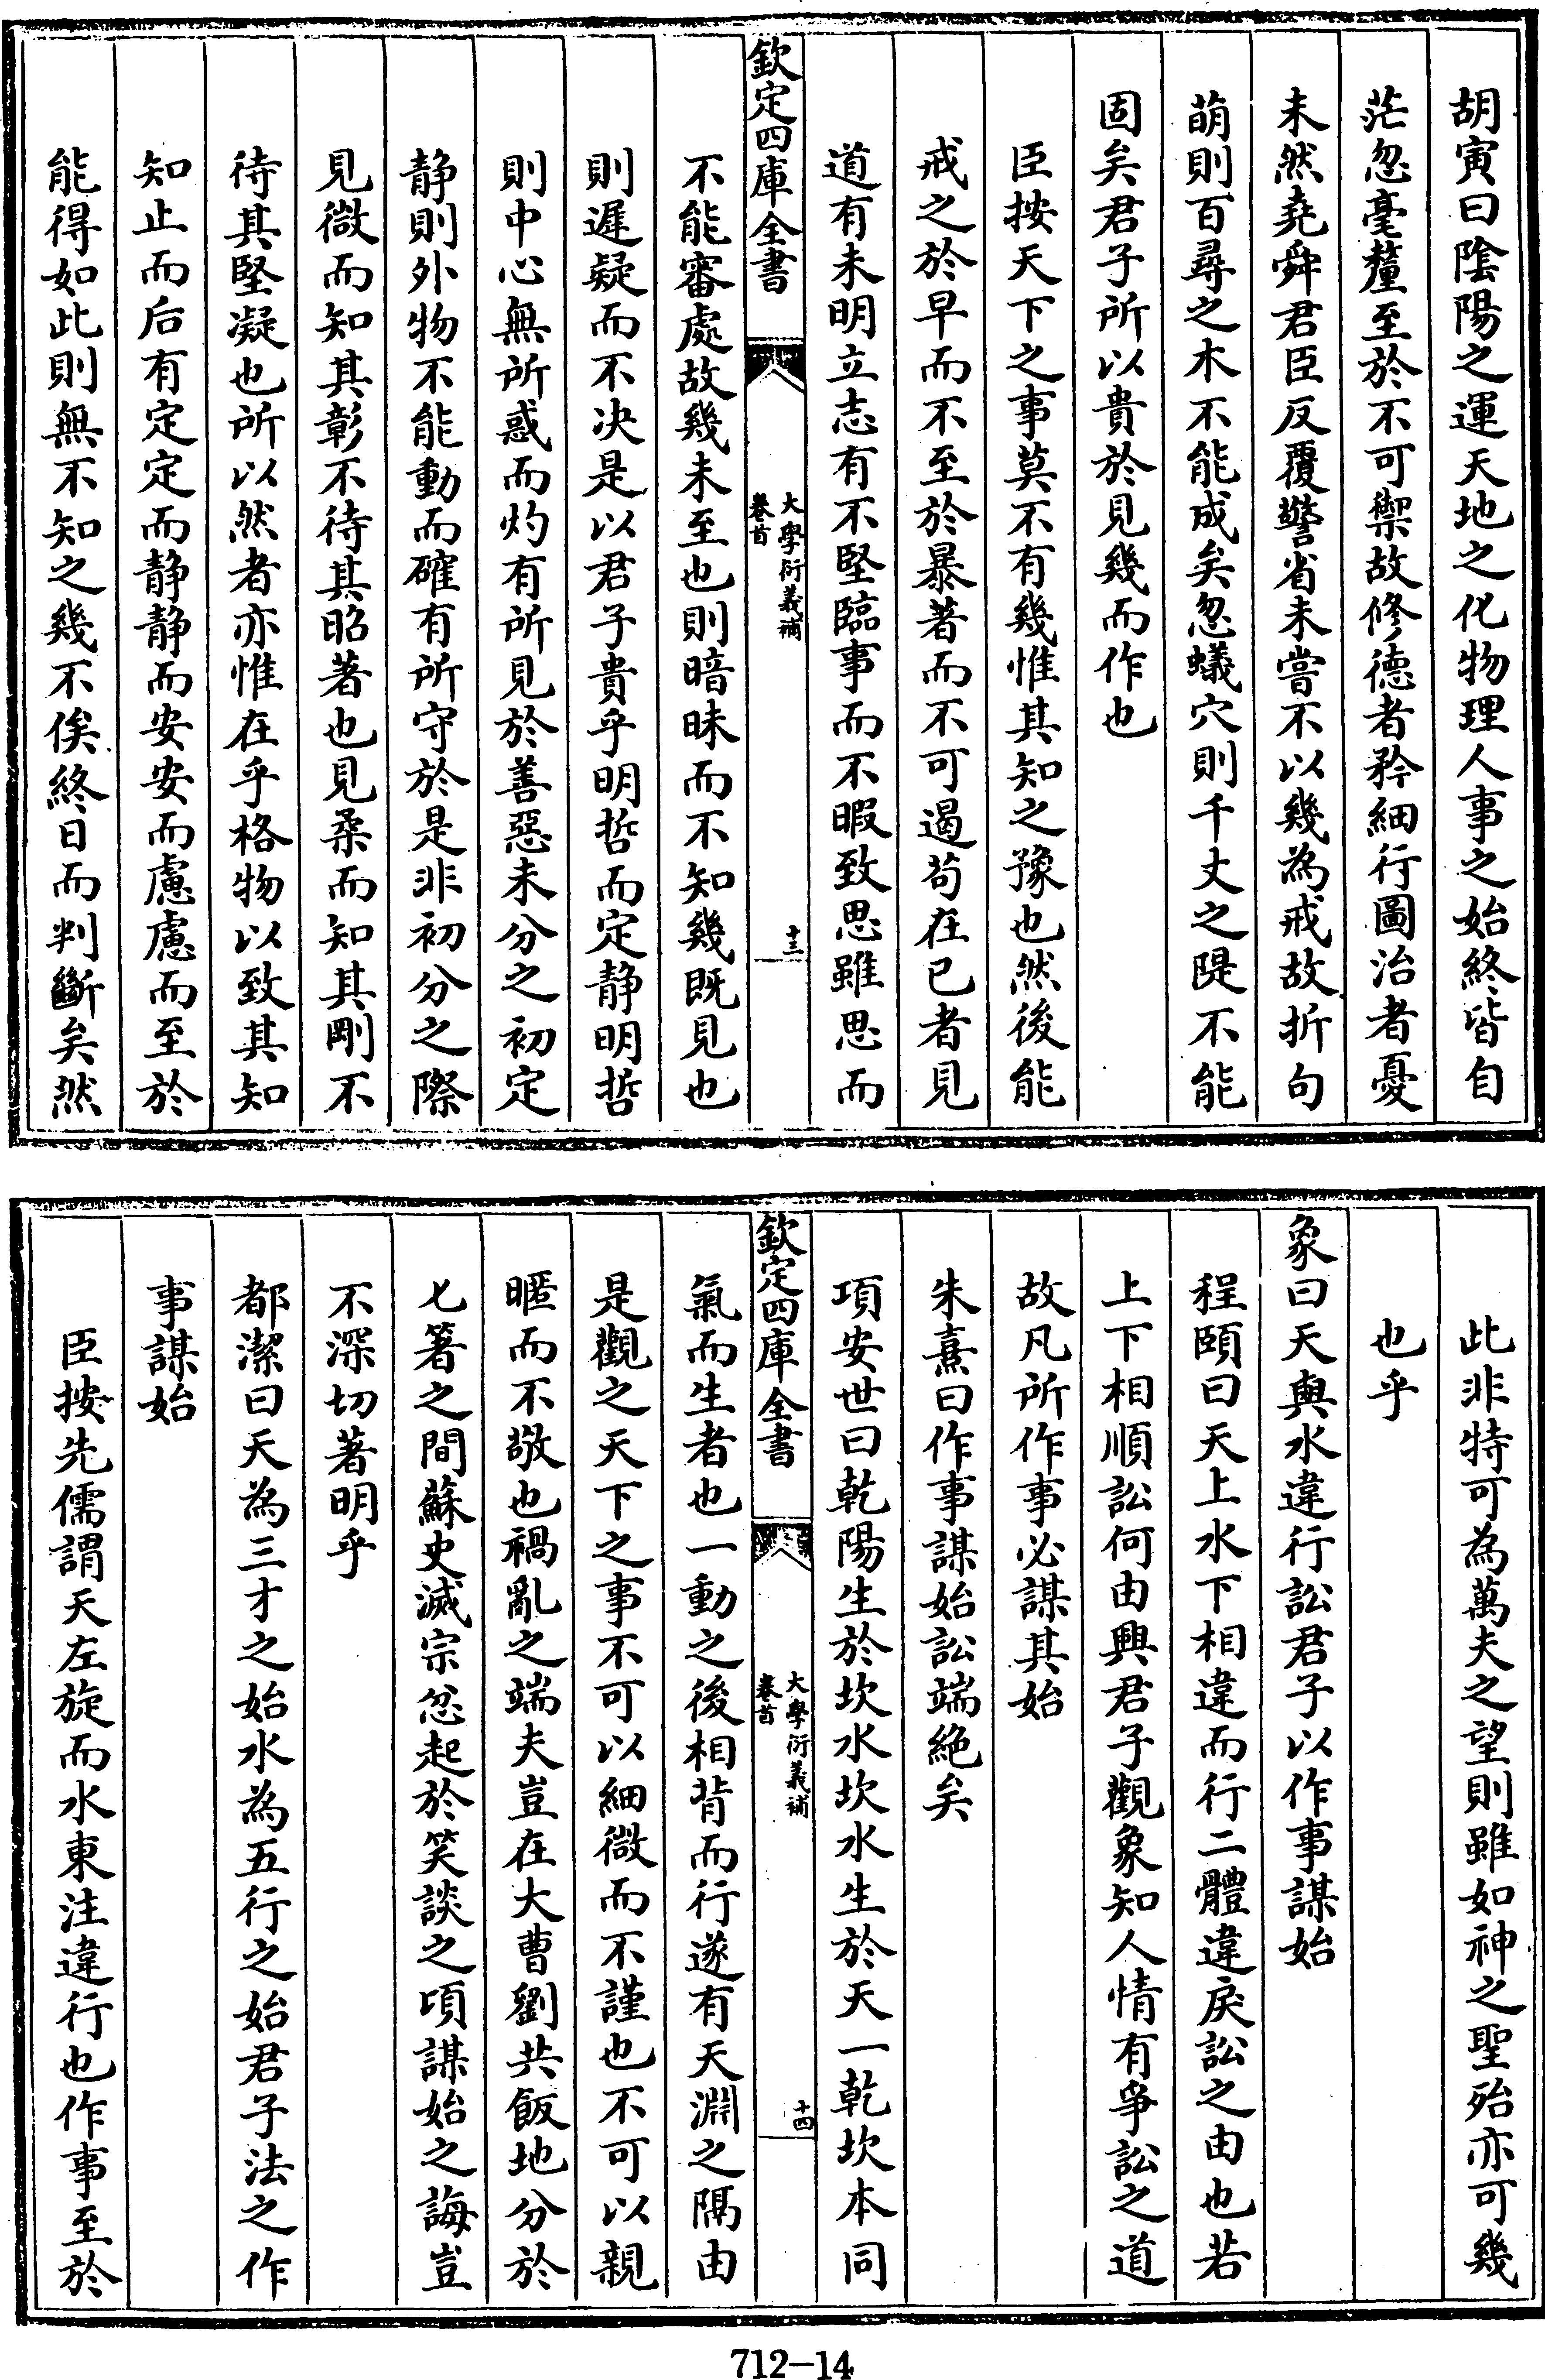 胡寅曰陰陽之運天地之化物理人事之始終皆自
茫忽毫釐至於不可禦故修德者矜細行圖治者憂
未然堯舜君臣反覆警省未嘗不以幾為戒故折句
萌則百尋之木不能成矣忽蟻穴則千丈之隄不能
固矣君子所以貴於見幾而作也
臣按天下之事莫不有幾惟其知之豫也然後能
戒之於早而不至於暴著而不可遏苟在已者見
道有未明立志有不堅臨事而不暇致思雖思而
欽定四庫全書
大學衍義補
卷首
十三
不能審處故幾未至也則暗昧而不知幾既見也
則遲疑而不决是以君子貴乎明哲而定静明哲
則中心無所惑而灼有所見於善惡未分之初定
静則外物不能動而確有所守於是非初分之際
見微而知其彰不待其昭著也見柔而知其剛不
待其堅凝也所以然者亦惟在乎格物以致其知
知止而后有定定而静静而安安而慮慮而至於
能得如此則無不知之幾不俟終日而判斷矣然
此非特可為萬夫之望則雖如神之聖殆亦可幾
也乎
象曰天與水違行訟君子以作事謀始
程頤曰天上水下相違而行二體違戾訟之由也若
上下相順訟何由興君子觀象知人情有爭訟之道
故凡所作事必謀其始
朱熹曰作事謀始訟端絶矣
項安世曰乾陽生於坎水坎水生於天一乾坎本同
欽定四庫全書
大學衍義補
卷首
十四
氣而生者也一動之後相背而行遂有天淵之隔由
是觀之天下之事不可以細微而不謹也不可以親
暱而不敬也禍亂之端夫豈在大曹劉共飯地分於
匕箸之間蘇史滅宗忿起於笑談之頃謀始之誨豈
不深切著明乎
都潔曰天為三才之始水為五行之始君子法之作
事謀始
臣按先儒謂天左旋而水東注違行也作事至於
712-14